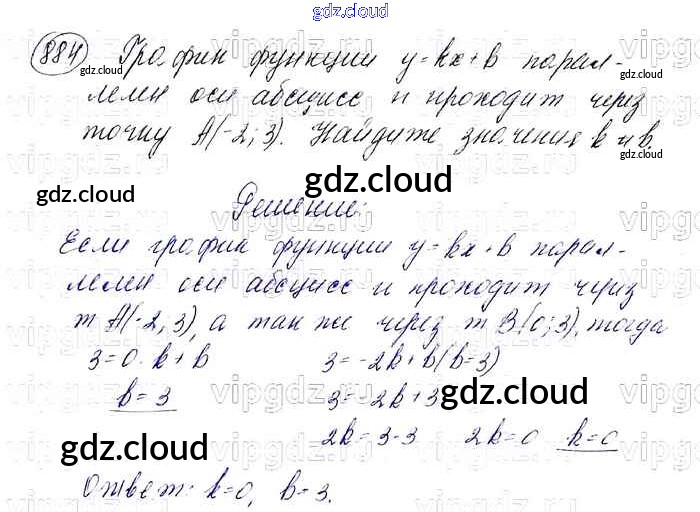 gdz.cloud
884 График функции y=kx+b парал-
лелен оси абсцисс и проходит через
точку A(-2; 3). Найдите значения k и b.
gdz.cloud
gdz.cloud
gdz.cloud
gdz.cloud
gdz.cloud
Решение:
Если график функции y=kx+b парал-
лелен оси абсцисс и проходит через
т A(-2, 3), а так же через т B(0; 3), тогда
3=0·k+b 3=-2k+b(b=3)
b=3 3=-2k+3
gdz.cloud
gdz.cloud
2k=3-3 2k=0 k=0
Ответ: k=0, b=3.
gdz.cloud